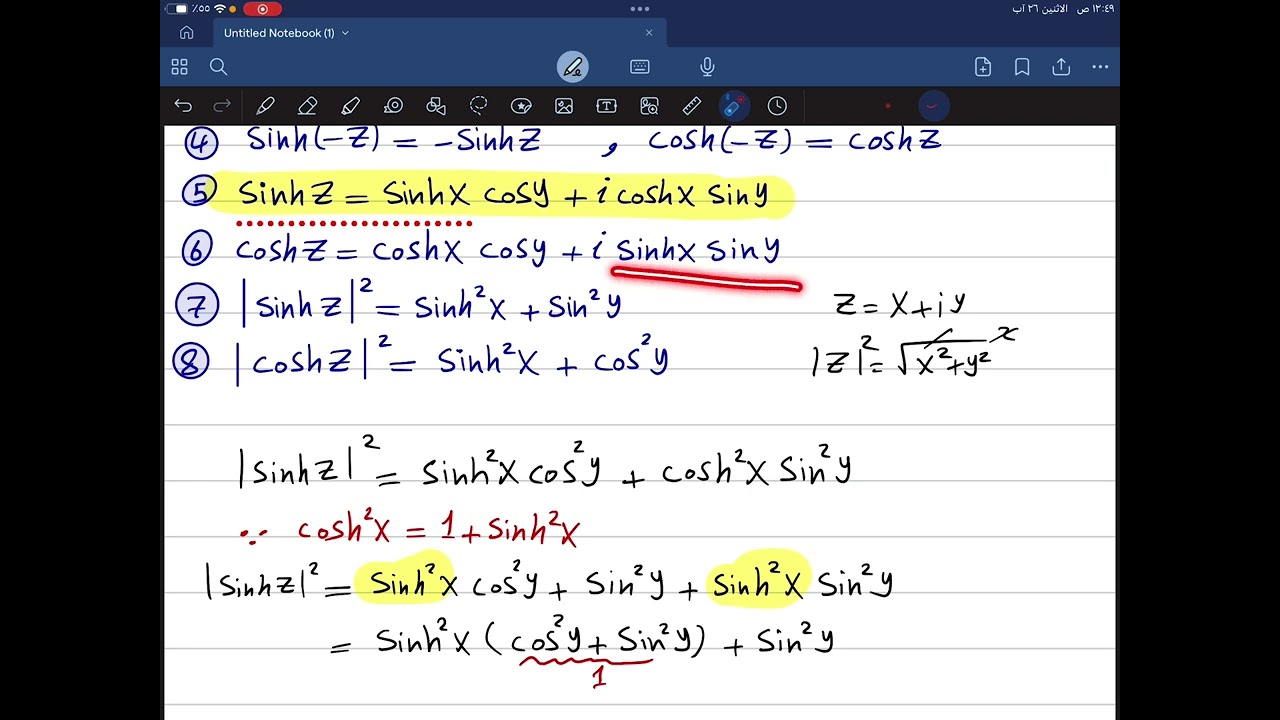 ٪٥٥ ١٢:٤٩ ص الاثنين ٢٦ آب
Untitled Notebook (1)
④ Sinh(-Z) = -Sinh Z , cosh(-Z) = cosh Z
⑤ Sinh Z = Sinh X cos y + i cosh X Sin y
⑥ cosh Z = cosh X cos y + i Sinh x Sin y
⑦ |Sinh Z|² = Sinh² X + Sin² y
Z = X + i y
⑧ |cosh Z|² = Sinh² X + cos² y
|Z|² = √(x² + y²)
|Sinh Z|² = Sinh² X cos² y + cosh² X Sin² y
∵ cosh² X = 1 + Sinh² X
|Sinh Z|² = Sinh² X cos² y + Sin² y + Sinh² X Sin² y
= Sinh² X (cos² y + Sin² y) + Sin² y
1